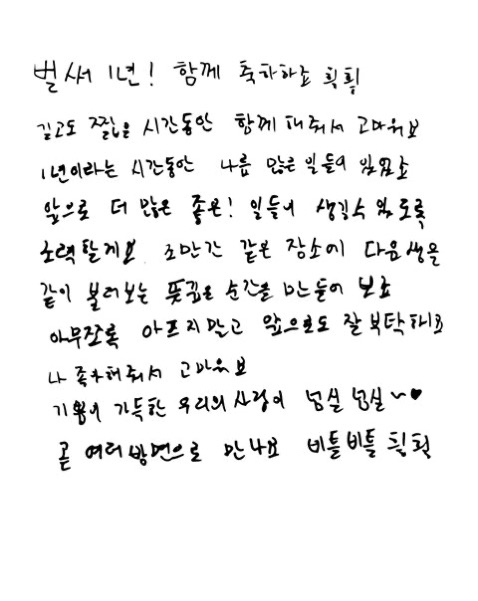 벌써 1년! 함께 축하하죠 힉힉
길고도 짧은 시간동안 함께 해줘서 고마워보
1년이라는 시간동안 나름 많은 일들이 있었죠
앞으로 더 많은 좋은! 일들이 생길수 있도록
노력할게요 조만간 같은 장소에 다음생을
같이 불러보는 뜻깊은 순간을 만들어 보죠
아무쪼록 아프지말고 앞으로도 잘부탁하죠
나 좋아해줘서 고마워보
기왕이 가득한 우리의 사랑이 넘실 넘실~♥
곧 여러방면으로 만나요 비틀비틀 힉힉